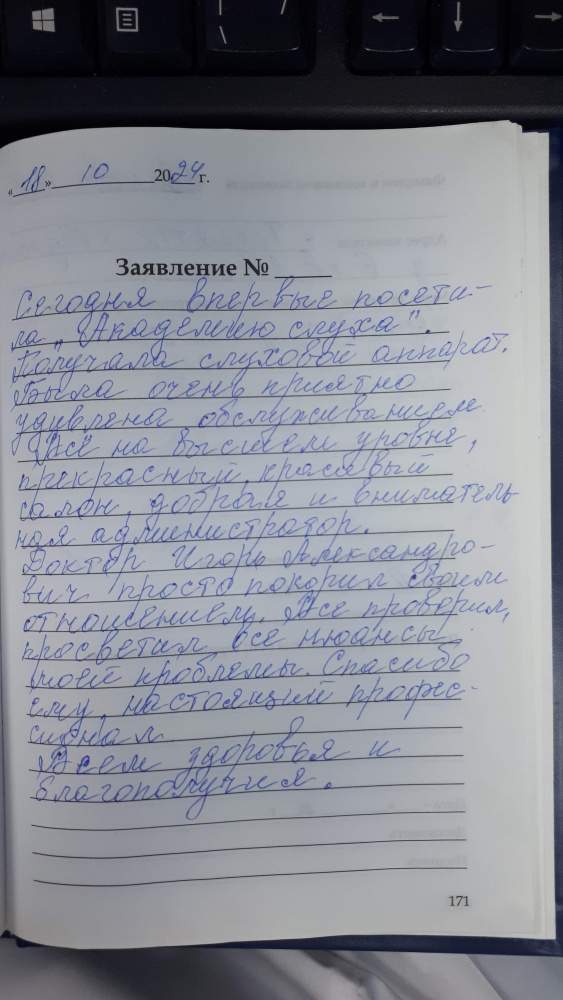 «18» 10 2024 г.
Заявление № ____
Сегодня впервые посети-
ла „Академию слуха".
Получала слуховой аппарат.
Была очень приятно
удивлена обслуживанием
Всё на высшем уровне,
прекрасный, красивый
салон, добрая и вниматель-
ная администратор.
Доктор Игорь Александро-
вич просто покорил своим
отношением. Все проверил,
просветил все нюансы
моей проблемы. Спасибо
ему, настоящий профес-
сионал
Всем здоровья и
благополучия.
171